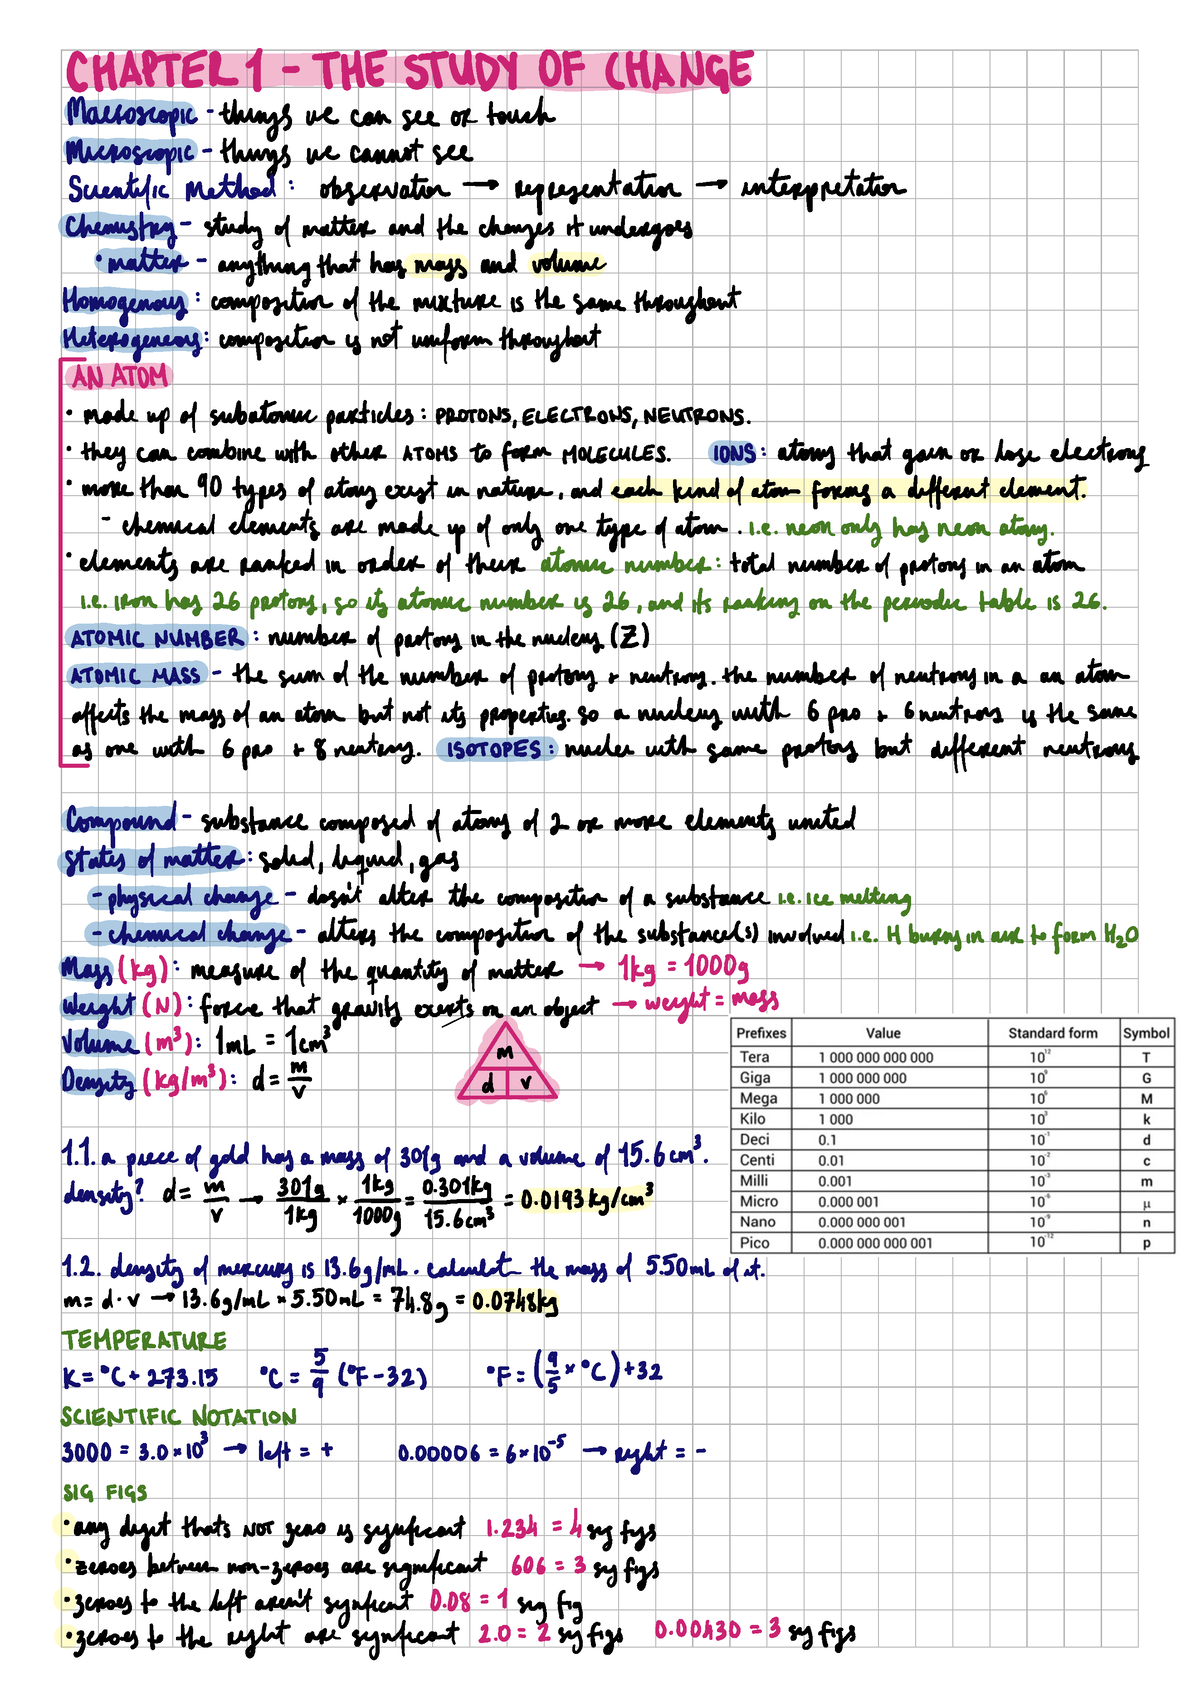 CHAPTER 1 - THE STUDY OF CHANGE
Macroscopic - things we can see or touch
Microscopic - things we cannot see
Scientific Method: observation → representation → interpretation
Chemistry - study of matter and the changes it undergoes
• matter - anything that has mass and volume
Homogenous: composition of the mixture is the same throughout
Heterogeneous: composition is not uniform throughout
AN ATOM
• made up of subatomic particles: PROTONS, ELECTRONS, NEUTRONS.
• they can combine with other ATOMS to form MOLECULES. IONS: atoms that gain or lose electrons
• more than 90 types of atoms exist in nature, and each kind of atom forms a different element.
- chemical elements are made up of only one type of atom. i.e. neon only has neon atoms.
• elements are ranked in order of their atomic number: total number of protons in an atom
i.e. iron has 26 protons, so its atomic number is 26, and its ranking on the periodic table is 26.
ATOMIC NUMBER: number of protons in the nucleus (Z)
ATOMIC MASS - the sum of the number of protons + neutrons. the number of neutrons in a an atom
affects the mass of an atom but not its properties. so a nucleus with 6 pro + 6 neutrons is the same
as one with 6 pro + 8 neutrons. ISOTOPES: nuclei with same protons but different neutrons
Compound - substance composed of atoms of 2 or more elements united
States of matter: solid, liquid, gas
- physical change - doesn't alter the composition of a substance i.e. ice melting
- chemical change - alters the composition of the substance(s) involved i.e. H burns in air to form H₂O
Mass (kg): measure of the quantity of matter → 1kg = 1000g
Weight (N): force that gravity exerts on an object → weight = mass
Volume (m³): 1mL = 1cm³
Density (kg/m³): d = m/v
m
d v
Prefixes Value Standard form Symbol
Tera 1 000 000 000 000 10¹² T
Giga 1 000 000 000 10⁹ G
Mega 1 000 000 10⁶ M
Kilo 1 000 10³ k
Deci 0.1 10⁻¹ d
Centi 0.01 10⁻² c
Milli 0.001 10⁻³ m
Micro 0.000 001 10⁻⁶ μ
Nano 0.000 000 001 10⁻⁹ n
Pico 0.000 000 000 001 10⁻¹² p
1.1. a piece of gold has a mass of 301g and a volume of 15.6cm³.
density? d = m/v → 301g/1kg × 1kg/1000g = 0.301kg/15.6cm³ = 0.0193kg/cm³
1.2. density of mercury is 13.6g/mL. calculate the mass of 5.50mL of it.
m = d·v → 13.6g/mL × 5.50mL = 74.8g = 0.0748kg
TEMPERATURE
K = °C + 273.15 °C = 5/9 (°F - 32) °F = (9/5 × °C) + 32
SCIENTIFIC NOTATION
3000 = 3.0 × 10³ → left = + 0.00006 = 6 × 10⁻⁵ → right = -
SIG FIGS
• any digit thats NOT zero is significant 1.234 = 4 sig figs
• zeroes between non-zeroes are significant 606 = 3 sig figs
• zeroes to the left aren't significant 0.08 = 1 sig fig
• zeroes to the right are significant 2.0 = 2 sig figs 0.00430 = 3 sig figs